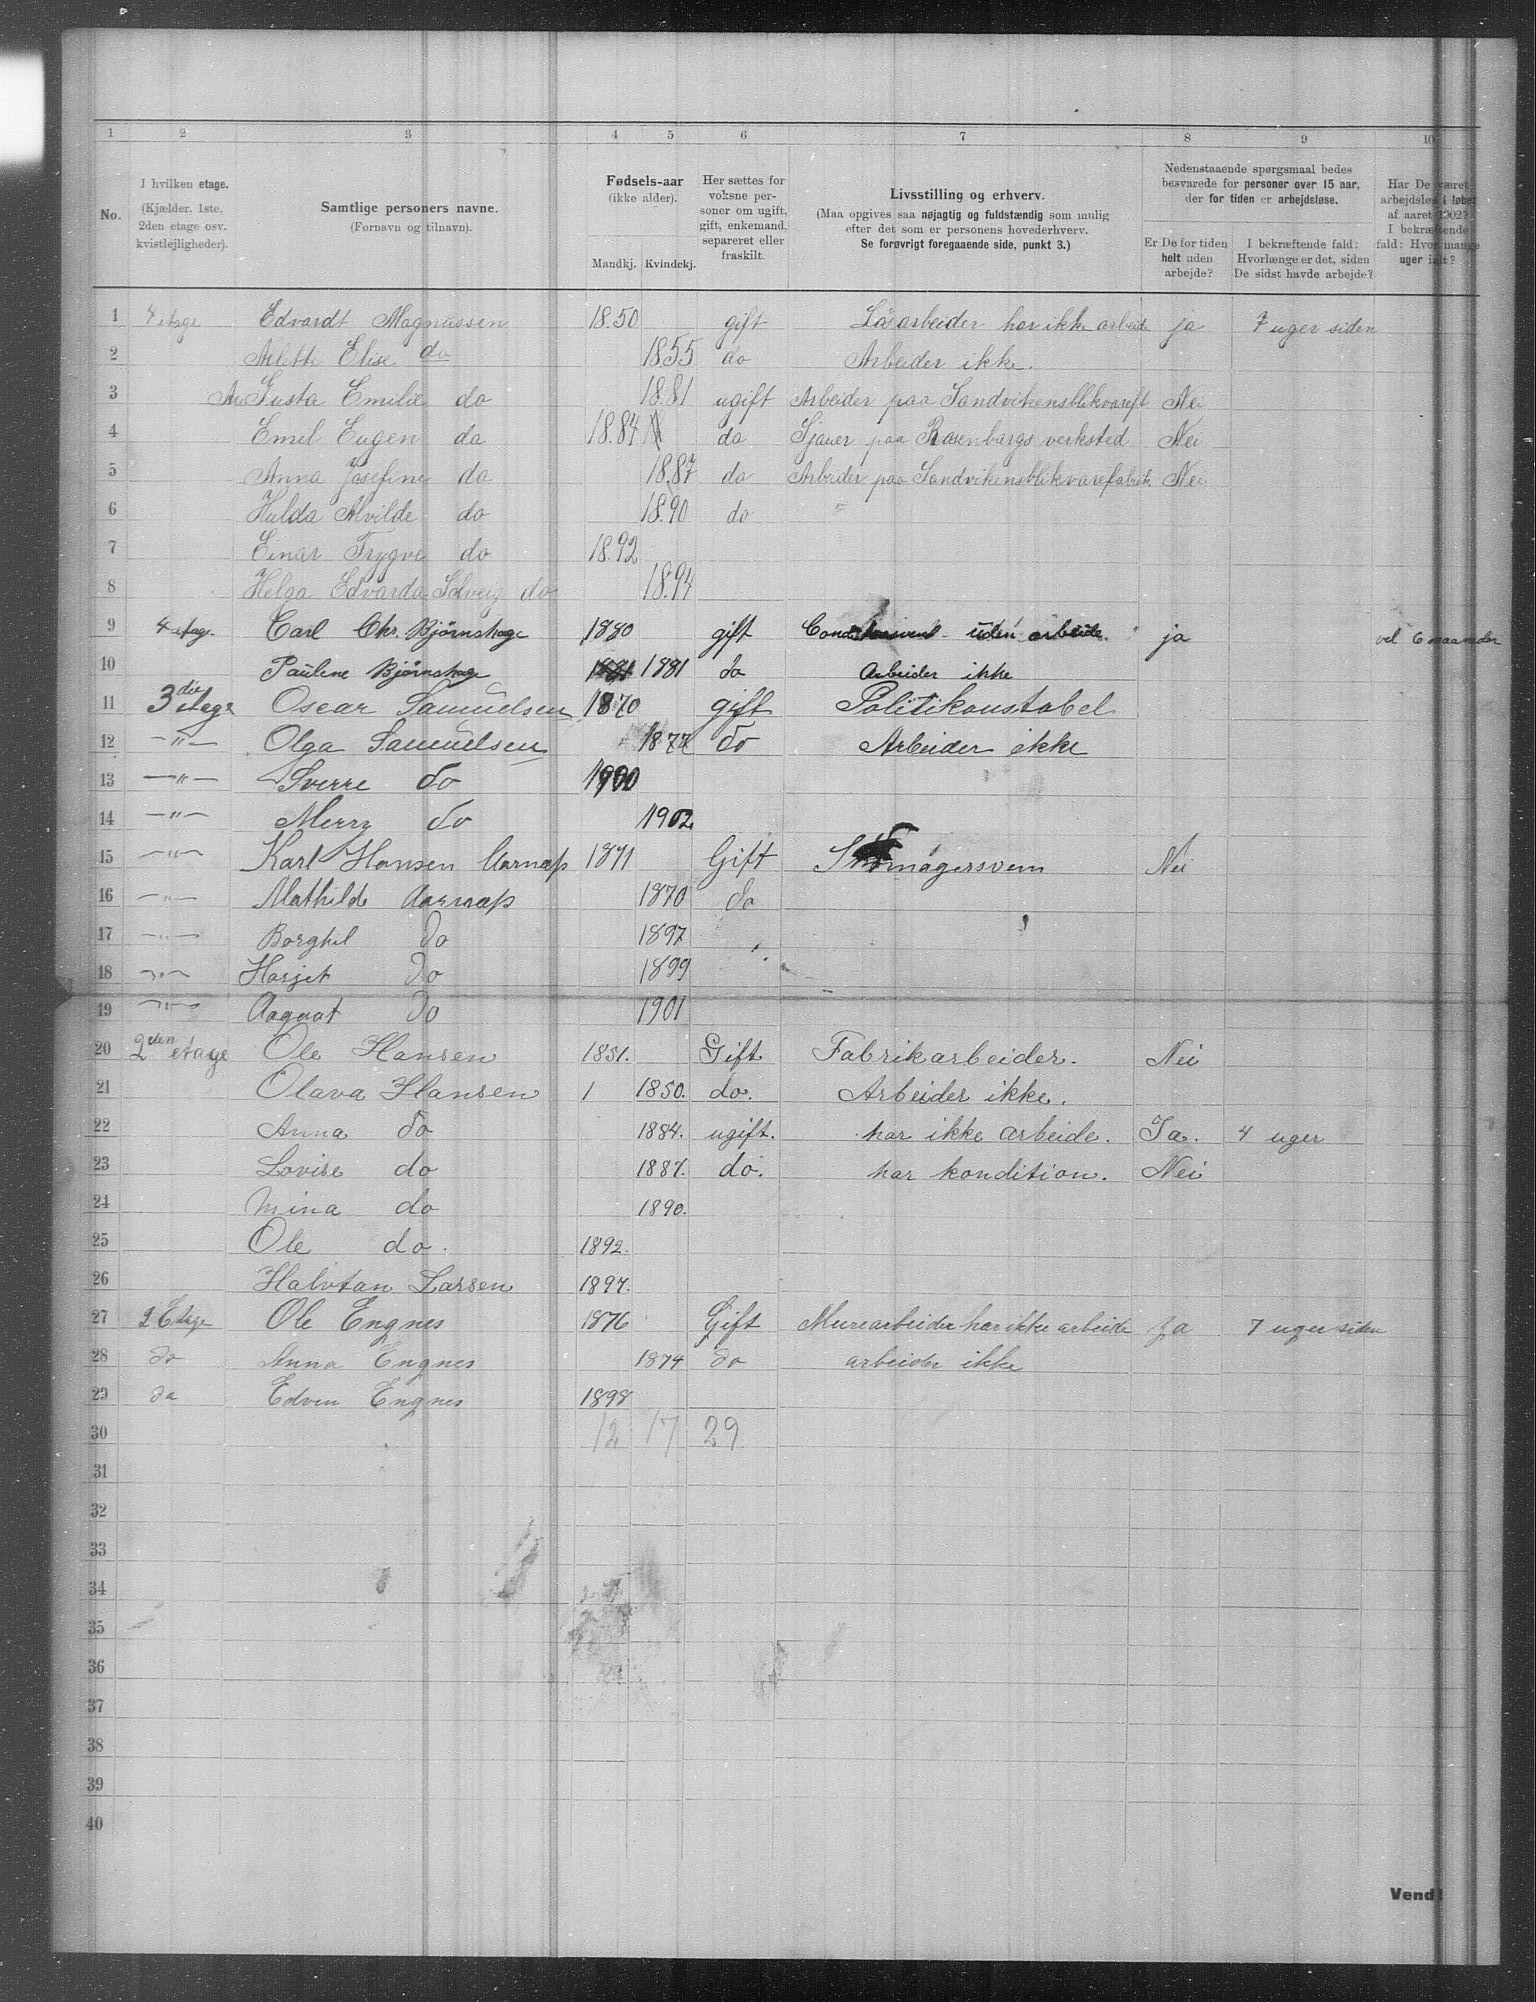 1 2 3 4 5 6 7 8 9 10
No.
I hvilken etage.
(Kjælder, 1ste.
2den etage osv.
kvistlejligheder).
Samtlige personers navne.
(Fornavn og tilnavn).
Fødsels-aar
(ikke alder).
Mandkj. Kvindekj.
Her sættes for
voksne per-
soner om ugift,
gift, enkemand,
separeret eller
fraskilt.
Livsstilling og erhverv.
(Maa opgives saa nøjagtig og fuldstændig som mulig
efter det som er personens hovederhverv.
Se forøvrigt foregaaende side, punkt 3.)
Nedenstaaende spørgsmaal bedes
besvarede for personer over 15 aar,
der for tiden er arbejdsløse.
Er De for tiden
helt uden
arbejde?
I bekræftende fald:
Hvorlænge er det, siden
De sidst havde arbejde?
Har De været
arbejdsløs i løbet
af aaret 1902?
I bekræftende
fald: Hvor mange
uger ialt?
1 4 etage Edvardt Magnussen 1850 gift Løsarbeider har ikke arbeide ja 7 uger siden
2 Alette Elise do 1855 do Arbeider ikke.
3 Gusta Emilie do 1881 ugift Arbeider paa Sandvikensblikvarefb Nei
4 Emil Eugen do 1884 do Sjauer paa Rosenbargs verksted Nei
5 Anna Josefine do 1887 do Arbeider paa Sandvikensblikvarefabrik Nei
6 Hulda Alvilde do 1890 do
7 Einar Trygve do 1892
8 Helga Edvarda Solveig do 1894
9 4 etag. Carl Chr. Bjørnshage 1880 gift uden arbeide. ja vel 6 maaneder
10 Paulene Bjørnshage 1881 do Arbeider ikke
11 3die etage Oscar Samuelsen 1870 gift Politikonstabel
12 -"- Olga Samuelsen 1877 do Arbeider ikke
13 -"- Sverre do 1900
14 -"- Merry do 1902
15 -"- Karl Hansen Aarnæs 1871 Gift Skomagersvem Nei
16 -"- Mathilde Aarnæs 1870 do
17 -"- Borghil do 1897
18 -"- Harjet do 1899
19 -"- Aagnat do 1901
20 2den etage Ole Hansen 1851. Gift Fabrikarbeider. Nei
21 Olava Hansen 1 1850. do. Arbeider ikke.
22 Anna do 1884. ugift. har ikke arbeide. Ja. 4 uger
23 Lovise do 1887. do. har kondition. Nei
24 Mina do 1890.
25 Ole do. 1892.
26 Halvtan Larsen 1897.
27 2 Etage Ole Engnes 1876 Gift Murearbeider har ikke arbeide Ja 7 uger siden
28 do Anna Engnes 1874 do arbeider ikke
29 da Edven Engnes 1898
30 12 17 29
31
32
33
34
35
36
37
38
39
40
Vend!